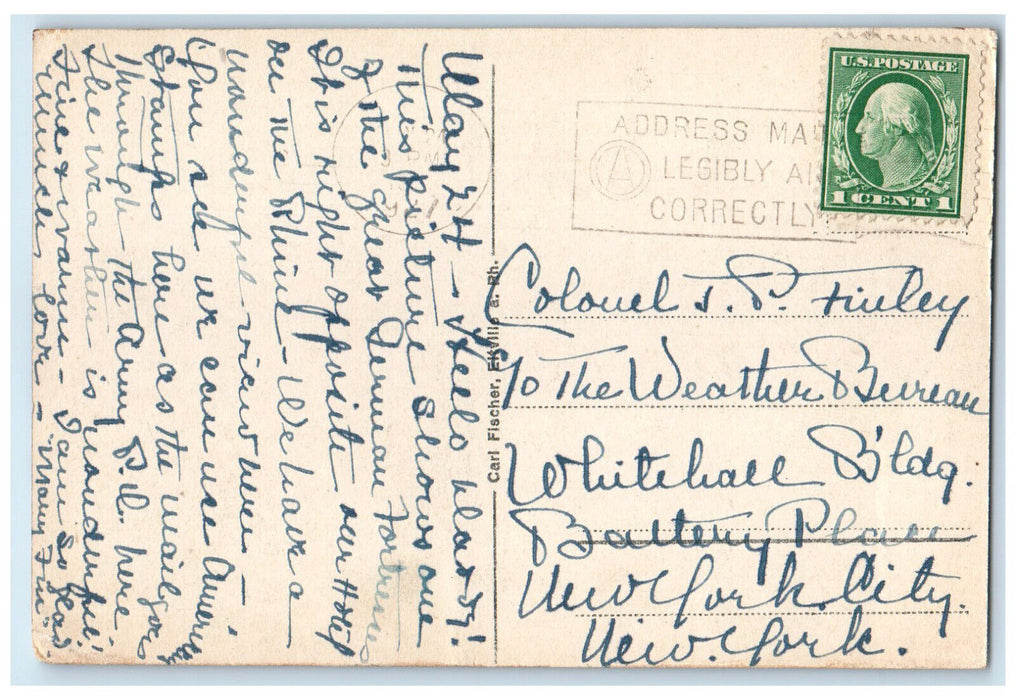 May 24 - Hello Daddy!
This picture shows one
of the great German Fortress
It is right opposite our Hotel
on the Rhine - We have a
wonderful view here -
You see we can use American
Stamps here as the mail goes
through the Army P.O. here
The weather is wonderful.
Fine & warm - I am so glad
much love -
U.S. POSTAGE
1 CENT 1
PM
ADDRESS MA
LEGIBLY A
CORRECTLY
Carl Fischer, a. Rh.
Colonel J. P. Finley
c/o The Weather Bureau
Whitehall B'ldg.
Battery Place
New York City.
New York.